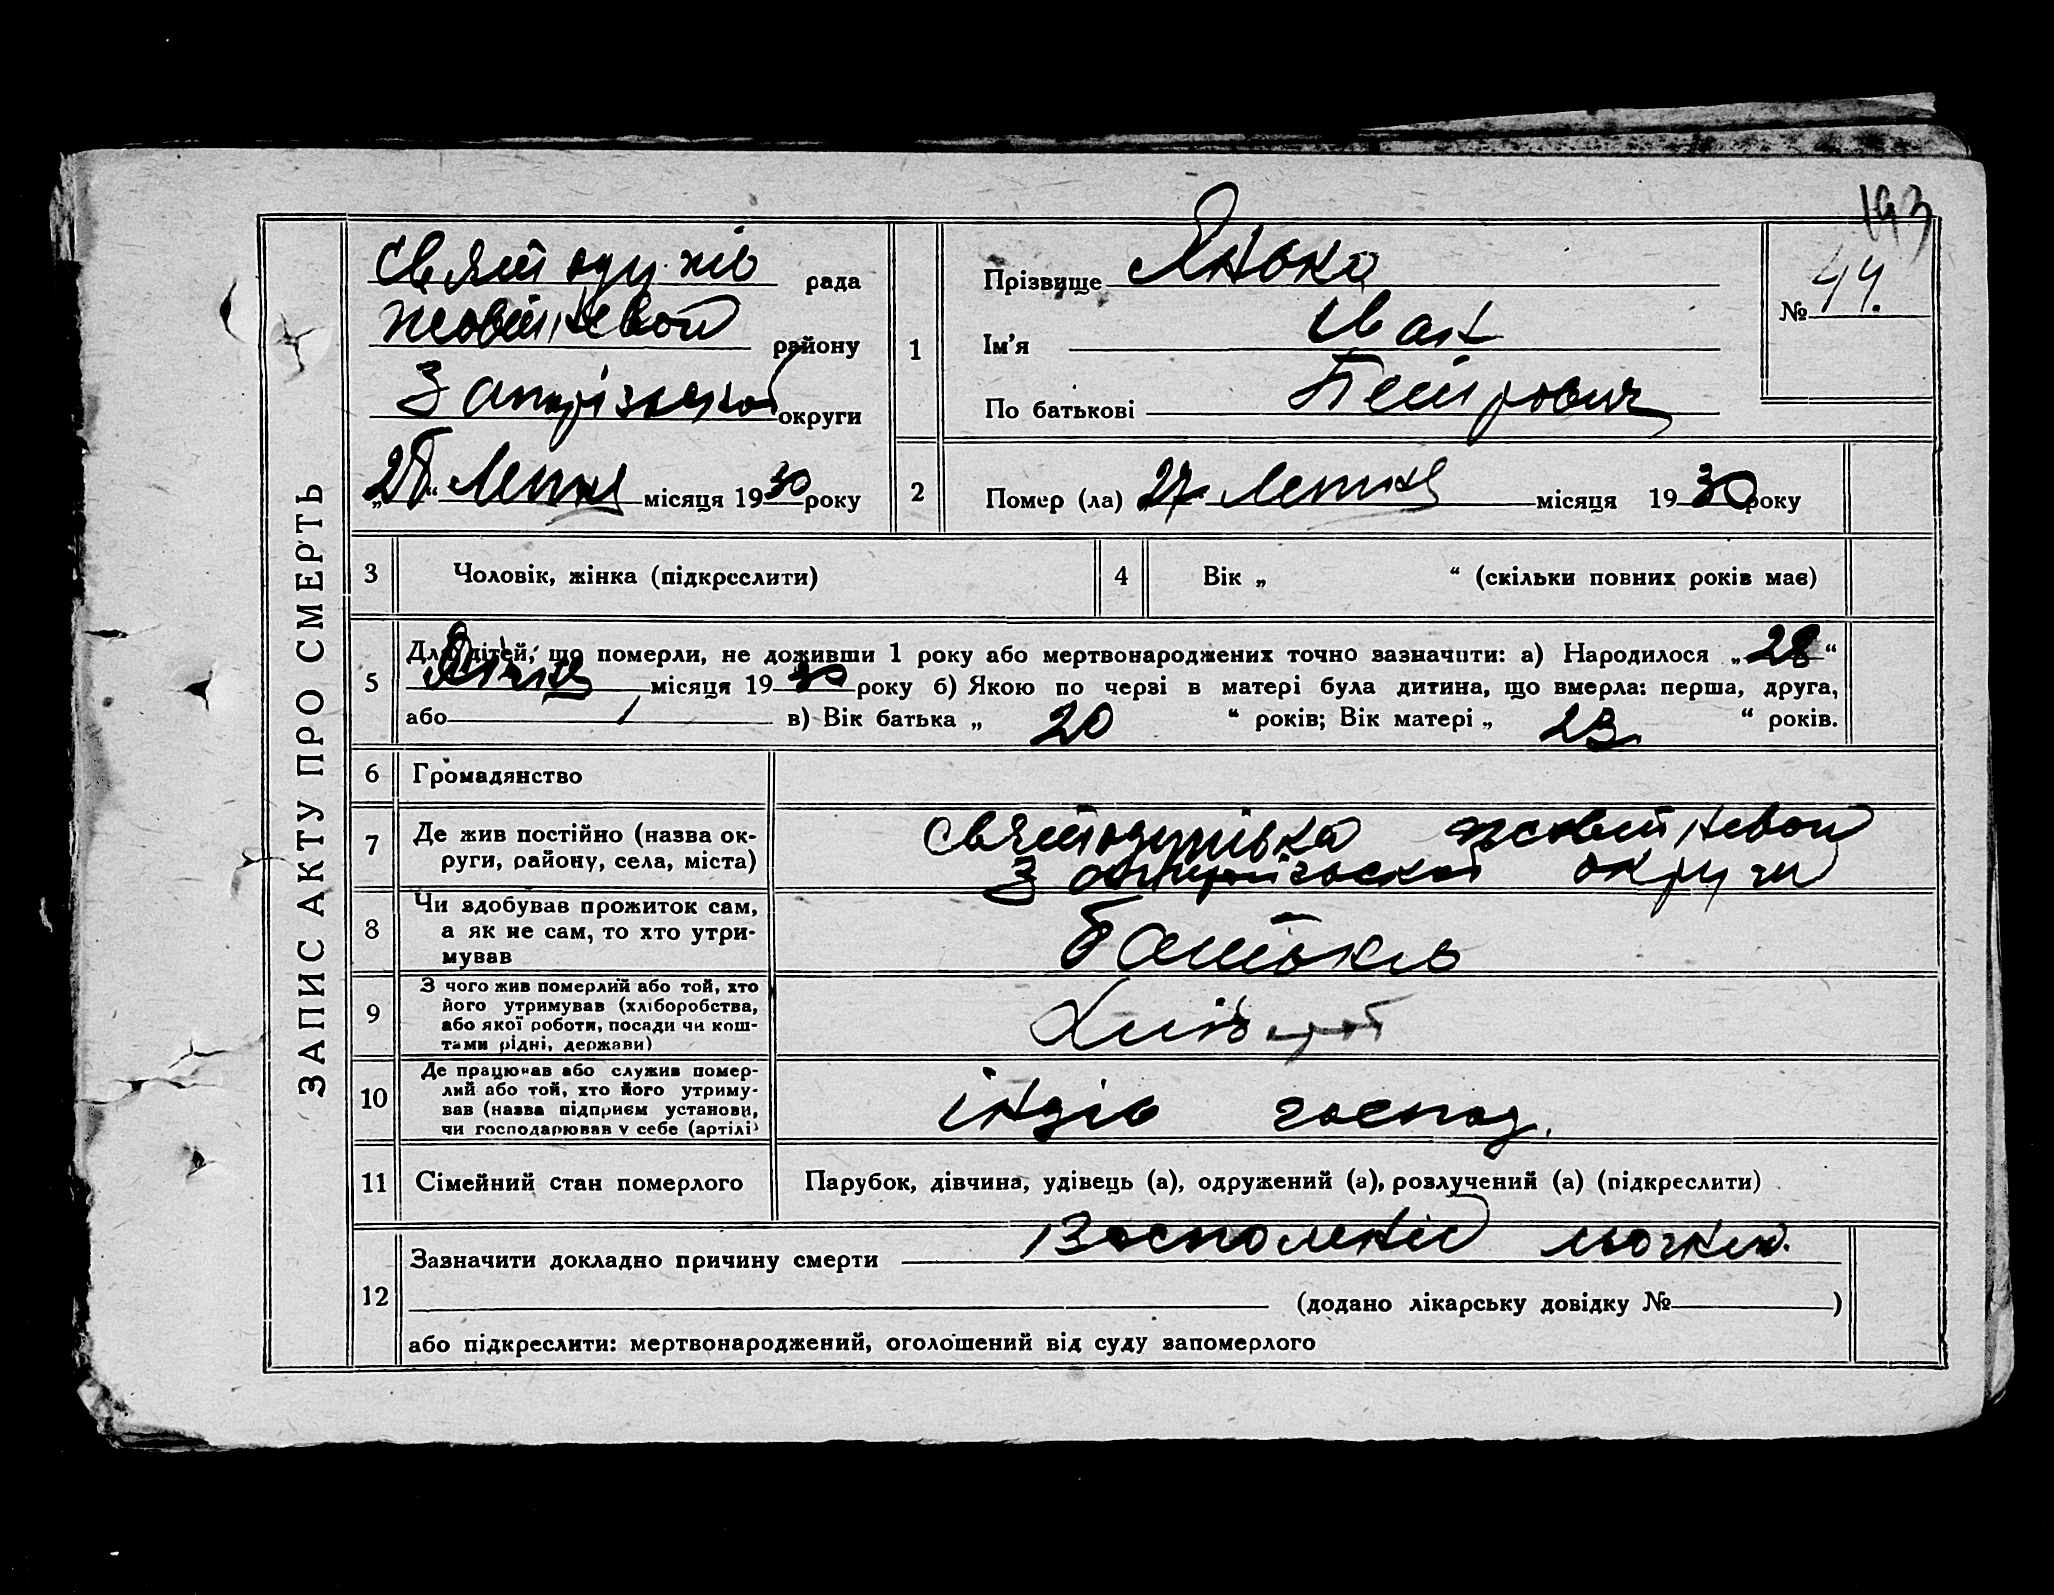 193
ЗАПИС АКТУ ПРО СМЕРТЬ
рада
району
округи
„28“ Липня місяця 1930 року
1
Прізвище Янько
Ім'я Іван
По батькові Петрович
№ 44.
2
Помер (ла) 27 Липня місяця 1930 року
3 Чоловік, жінка (підкреслити)
4 Вік „ “ (скільки повних років має)
5 Для дітей, що померли, не доживши 1 року або мертвонароджених точно зазначити: а) Народилося „28“
місяця 1930 року б) Якою по черзі в матері була дитина, що вмерла: перша, друга,
або в) Вік батька „ 20 “ років; Вік матері „ 23 “ років.
6 Громадянство
7 Де жив постійно (назва ок-
руги, району, села, міста)
округи
8 Чи здобував прожиток сам,
а як не сам, то хто утри-
мував
Батьків
9 З чого жив померлий або той, хто
його утримував (хліборобства,
або якої роботи, посади чи кош-
тами рідні, держави)
10 Де працював або служив помер-
лий або той, хто його утриму-
вав (назва підприєм установи,
чи господарював у себе (артілі)
індів господ.
11 Сімейний стан померлого
Парубок, дівчина, удівець (а), одружений (а), розлучений (а) (підкреслити)
12 Зазначити докладно причину смерти
(додано лікарську довідку № )
або підкреслити: мертвонароджений, оголошений від суду запомерлого